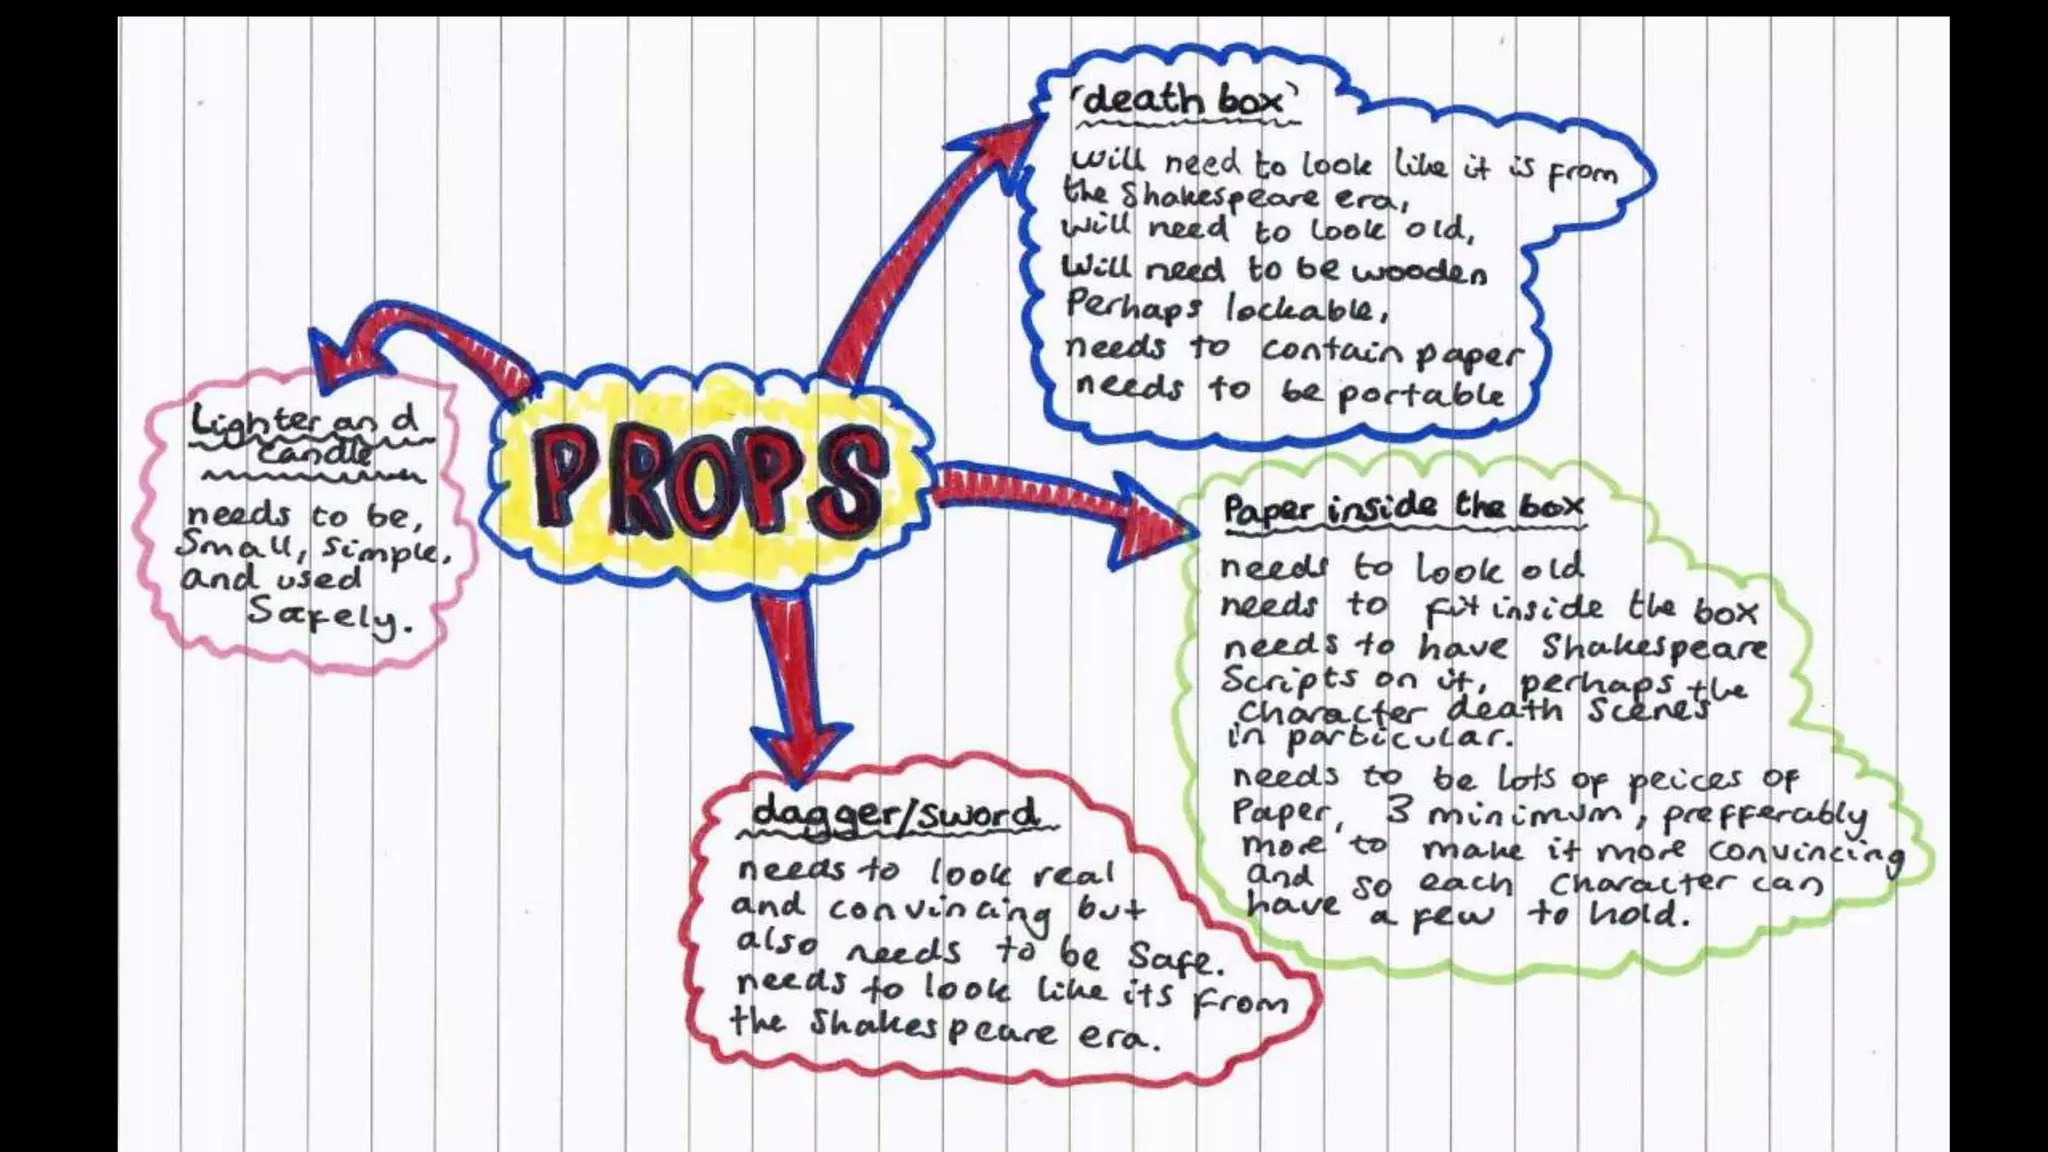 PROPS
'death box'
will need to look like it is from
the Shakespeare era,
will need to look old,
will need to be wooden
Perhaps lockable,
needs to contain paper
needs to be portable
Lighter and
candle
needs to be,
Small, simple,
and used
Safely.
Paper inside the box
needs to look old
needs to fit inside the box
needs to have Shakespeare
Scripts on it, perhaps the
Character death scenes
in particular.
needs to be lots of peices of
Paper, 3 minimum, prefferably
more to make it more convincing
and so each character can
have a few to hold.
dagger/sword
needs to look real
and convincing but
also needs to be safe.
needs to look like its from
the Shakespeare era.